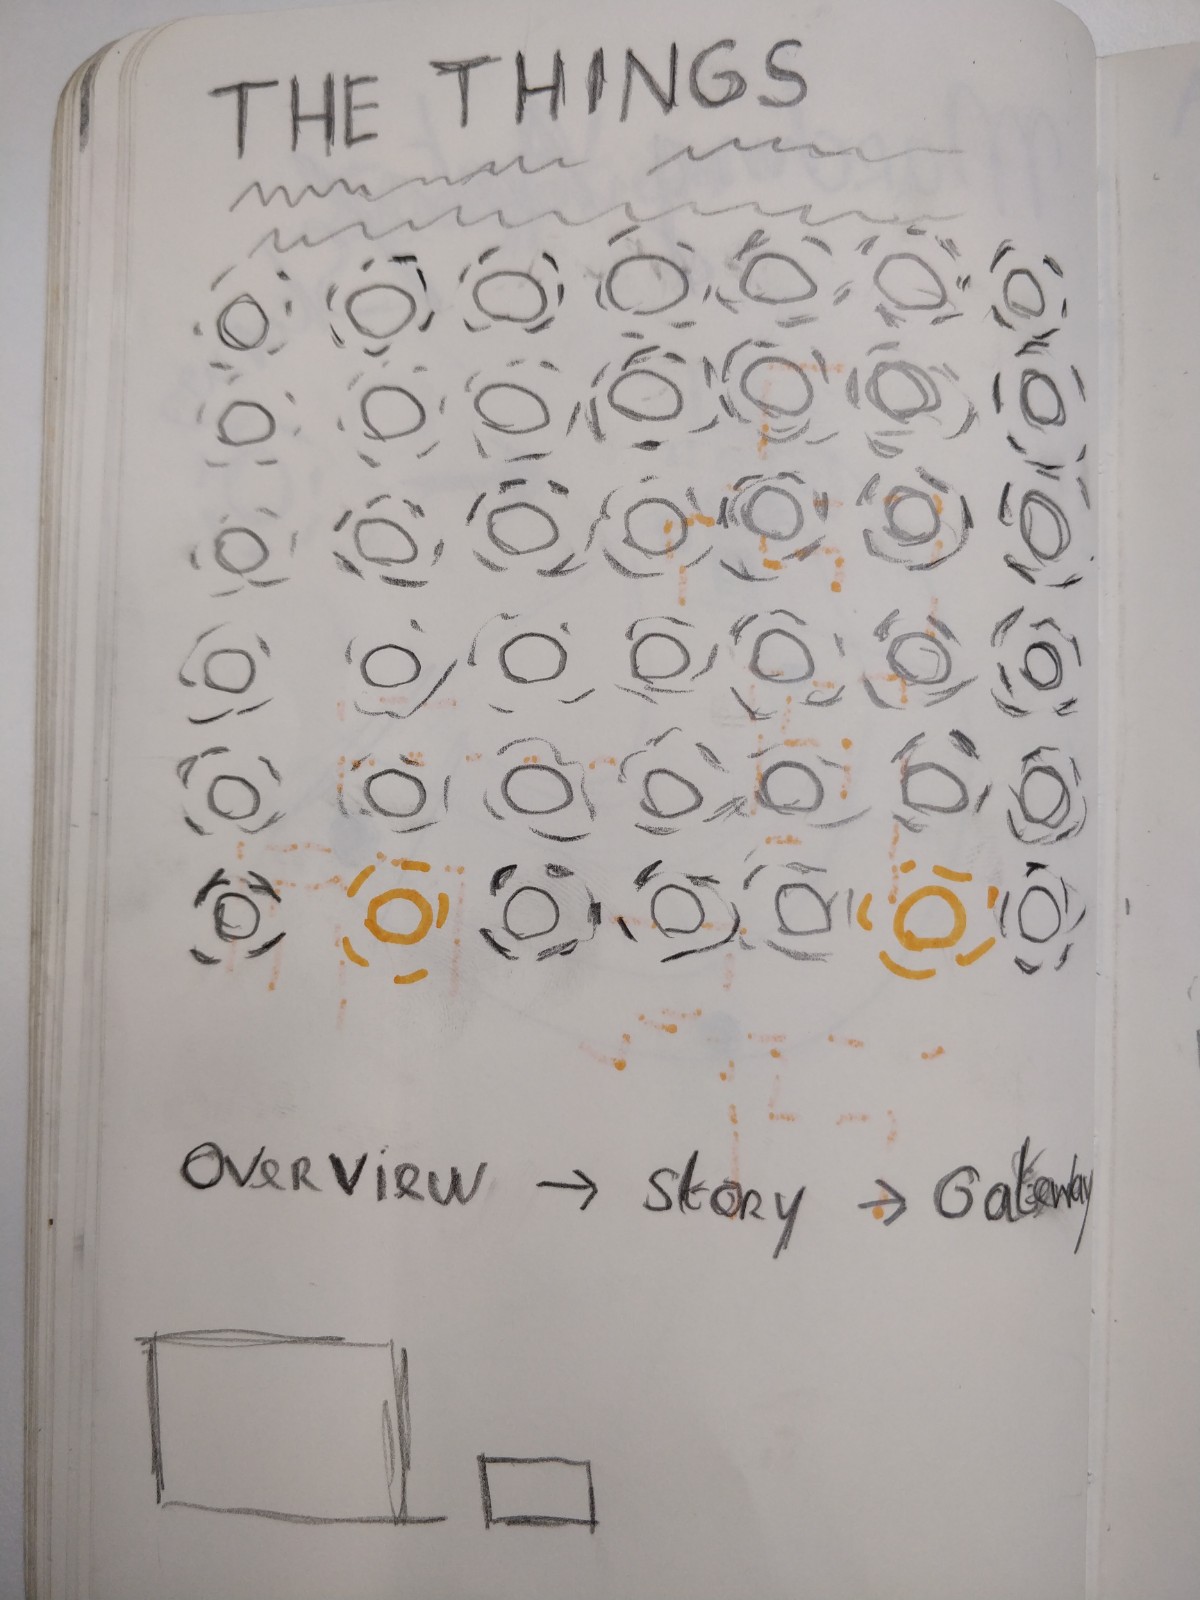 THE THINGS
OVERVIEW → StORy → Gateway